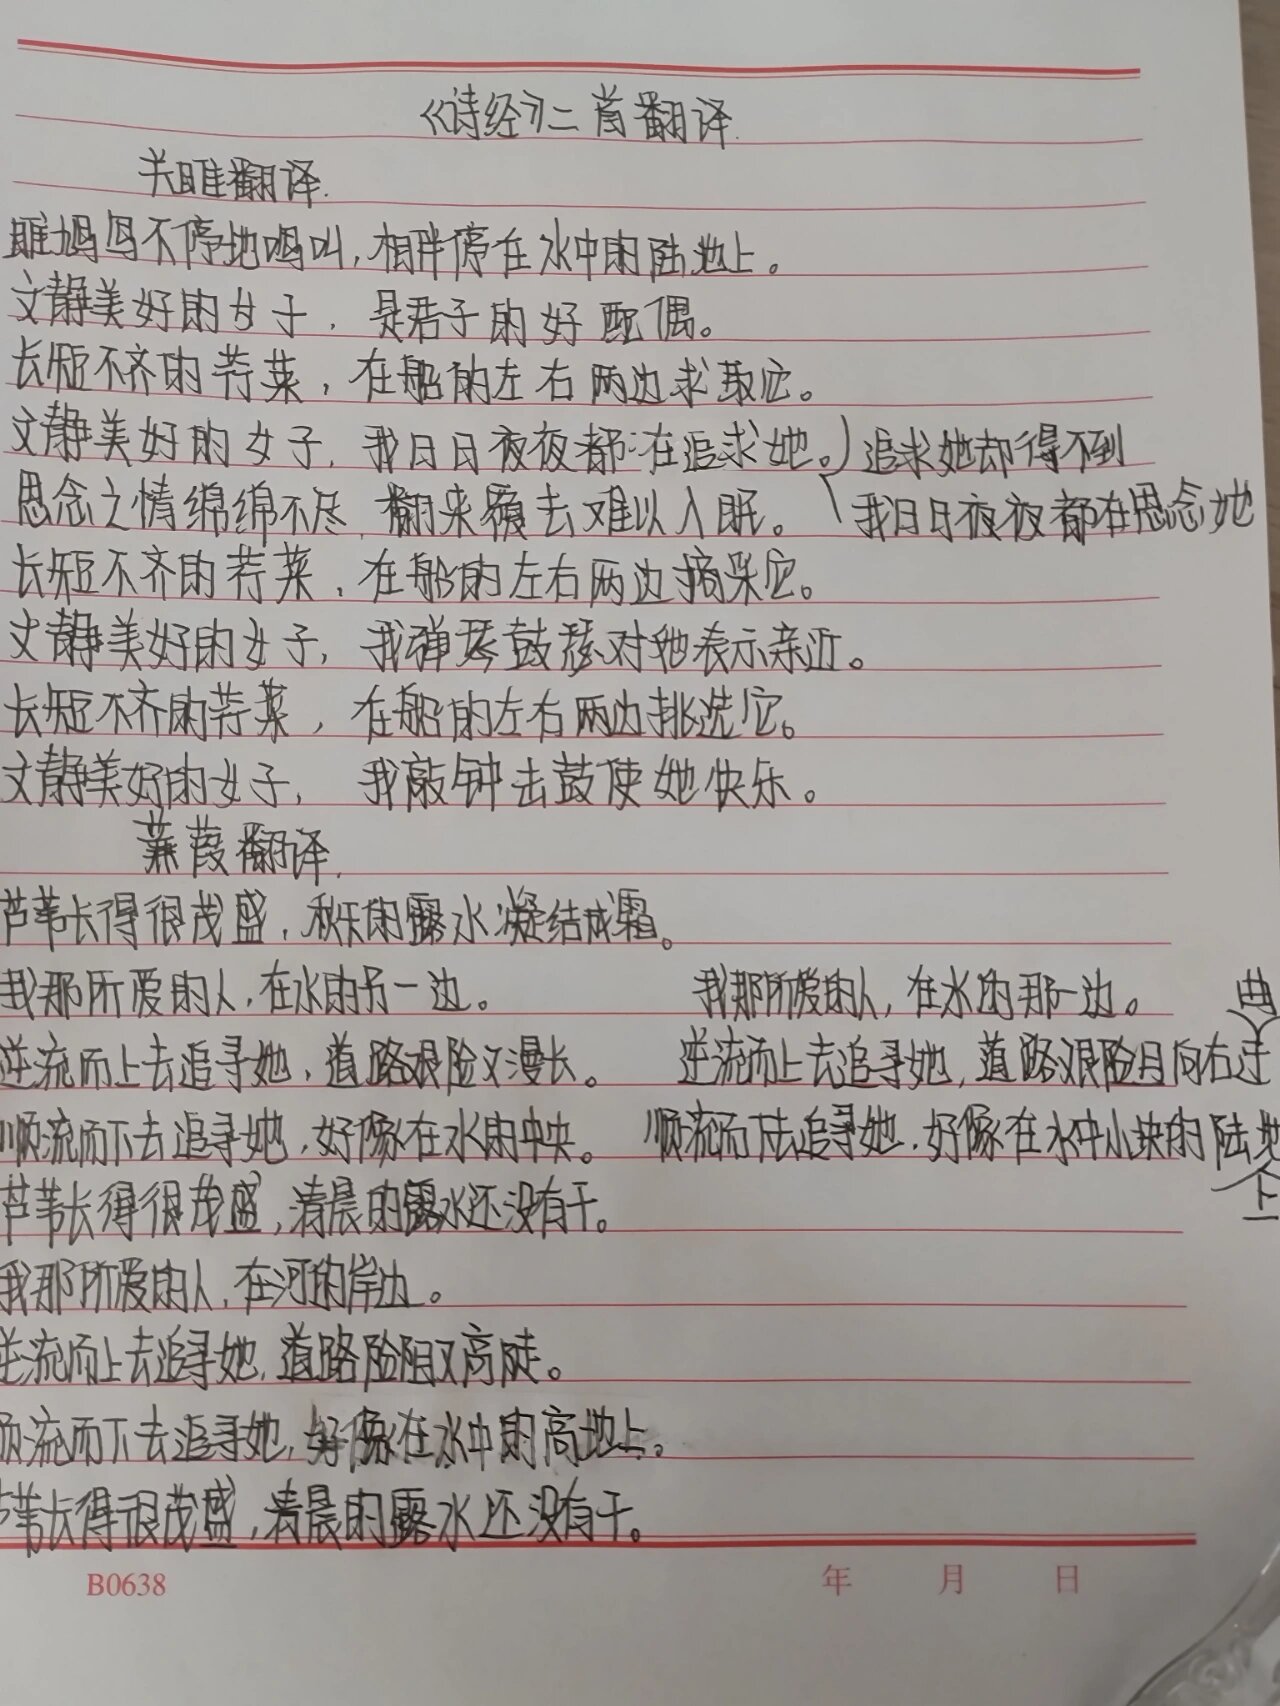 《诗经》二首翻译.
关雎翻译.
雎鸠鸟不停地鸣叫,相伴停在水中的陆地上。
文静美好的女子,是君子的好配偶。
长短不齐的荇菜,在船的左右两边求取它。
文静美好的女子,我日日夜夜都在追求她。) 追求她却得不到
思念之情绵绵不尽,翻来覆去难以入眠。 我日日夜夜都在思念她
长短不齐的荇菜,在船的左右两边摘采它。
文静美好的女子,我弹琴鼓瑟对她表示亲近。
长短不齐的荇菜,在船的左右两边挑选它。
文静美好的女子,我敲钟击鼓使她快乐。
蒹葭翻译.
芦苇长得很茂盛,秋天的露水凝结成霜。
我那所爱的人,在水的另一边。 我那所爱的人,在水的那一边。
逆流而上去追寻她,道路艰险又漫长。 逆流而上去追寻她,道路艰险且向右迂曲
顺流而下去追寻她,好像在水的中央。 顺流而下去追寻她,好像在水中小块的陆地上
芦苇长得很茂盛,清晨的露水还没有干。
我那所爱的人,在河的岸边。
逆流而上去追寻她,道路险阻又高陡。
顺流而下去追寻她,好像在水中的高地上。
芦苇长得很茂盛,清晨的露水还没有干。
B0638 年 月 日